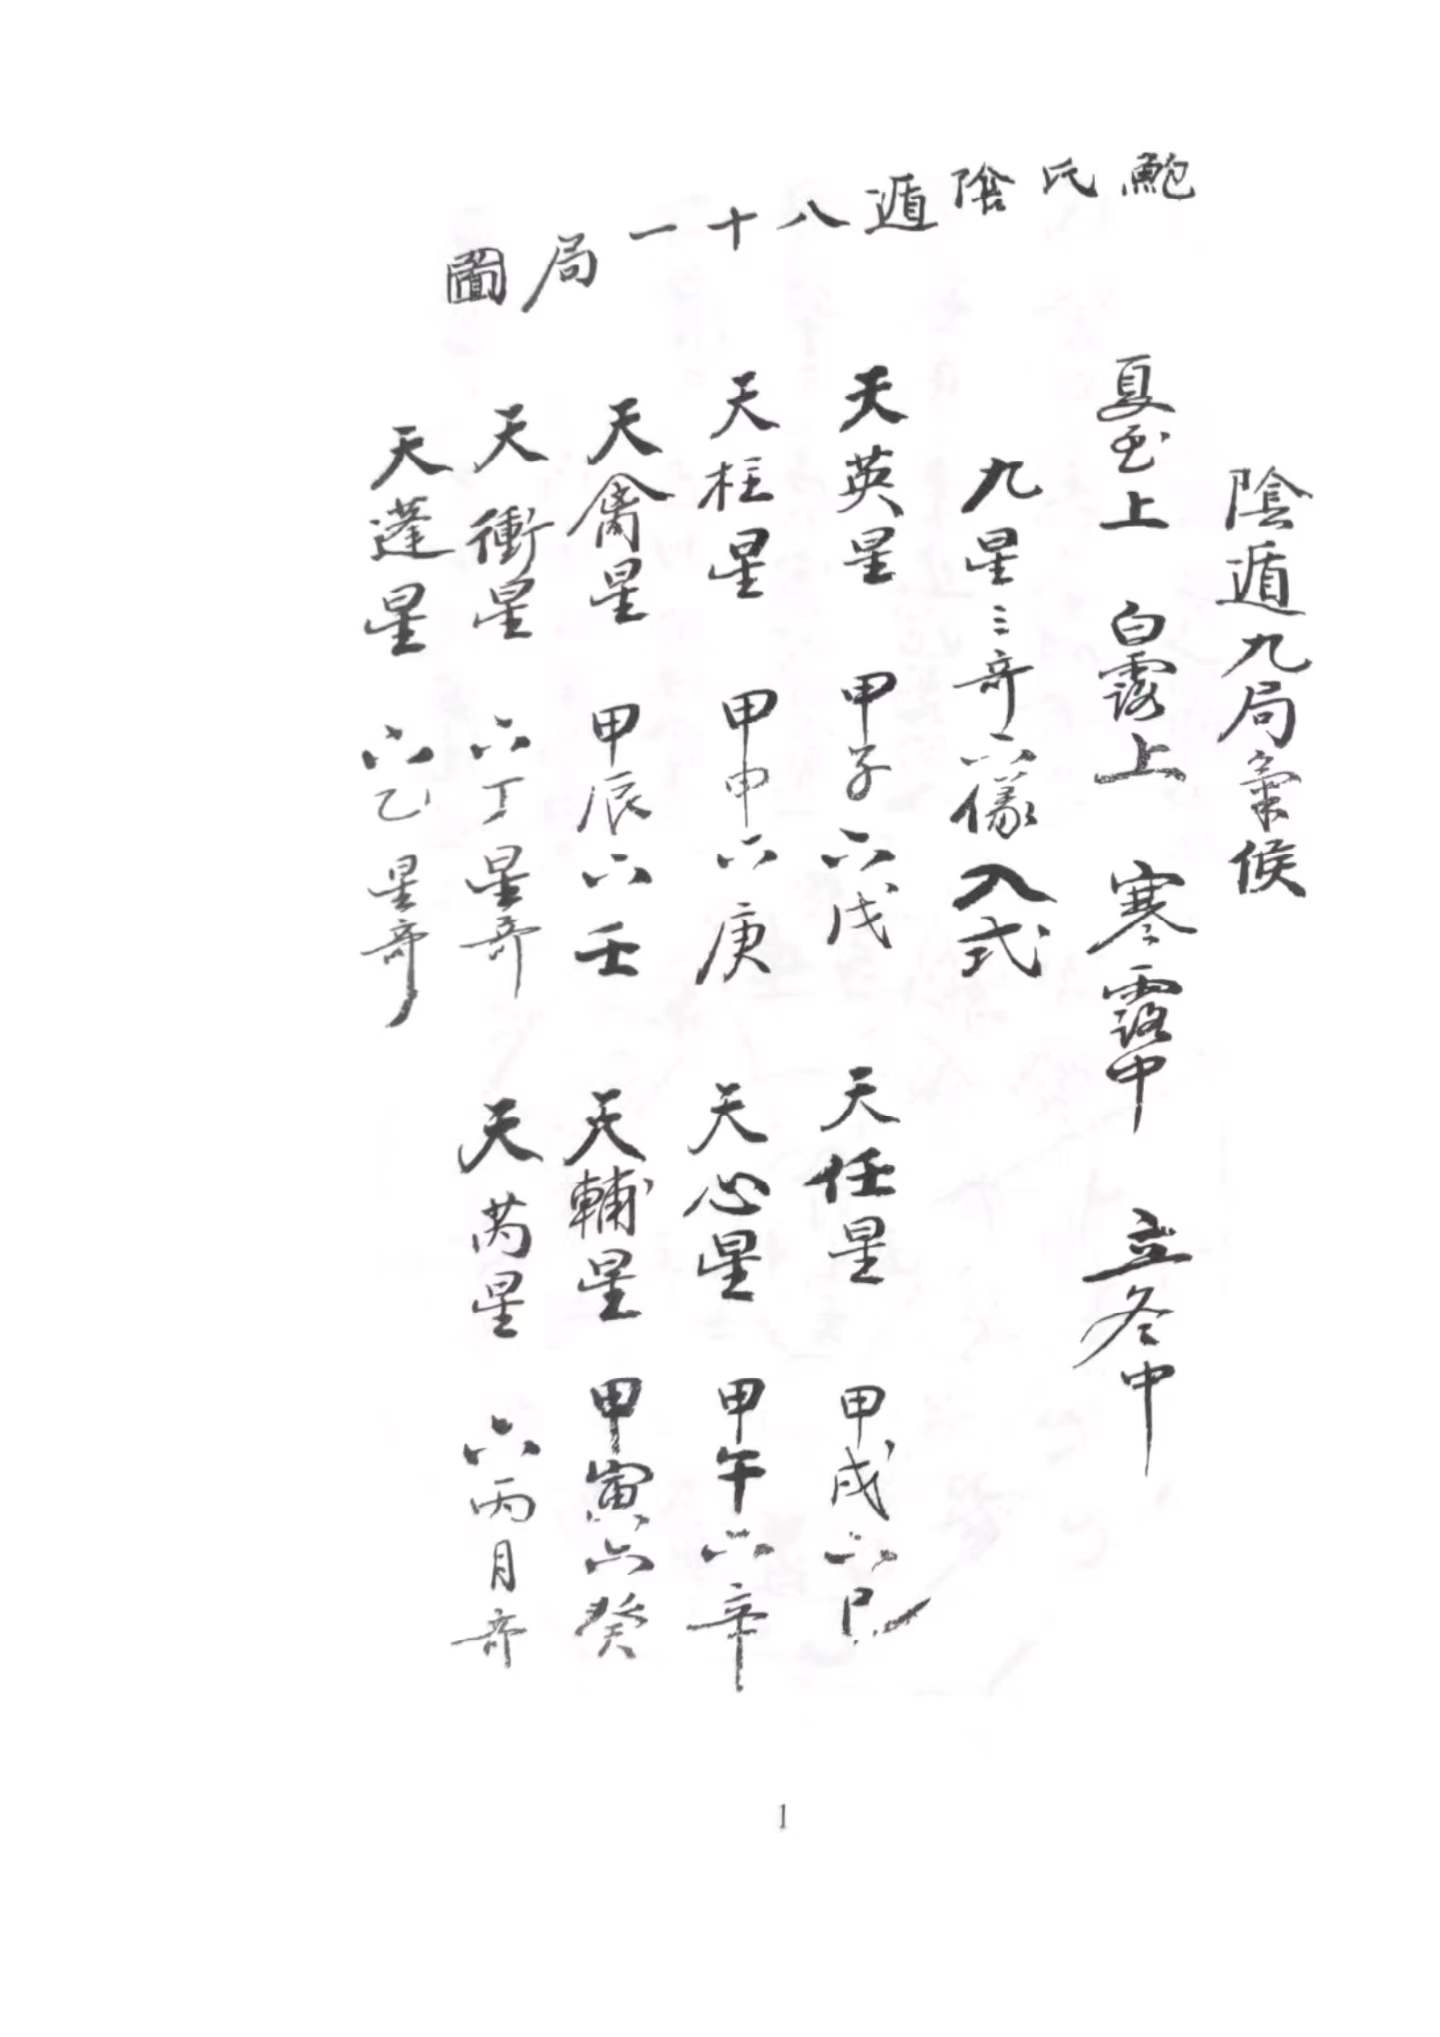 鮑氏陰遁八十一局圖
陰遁九局氣候
夏至上 白露上 寒露中 立冬中
九星三奇六儀入式
天英星 甲子六戊 天任星 甲戌六己
天柱星 甲申六庚 天心星 甲午六辛
天禽星 甲辰六壬 天輔星 甲寅六癸
天衝星 六丁星奇 天芮星 六丙月奇
天蓬星 六乙星奇
1